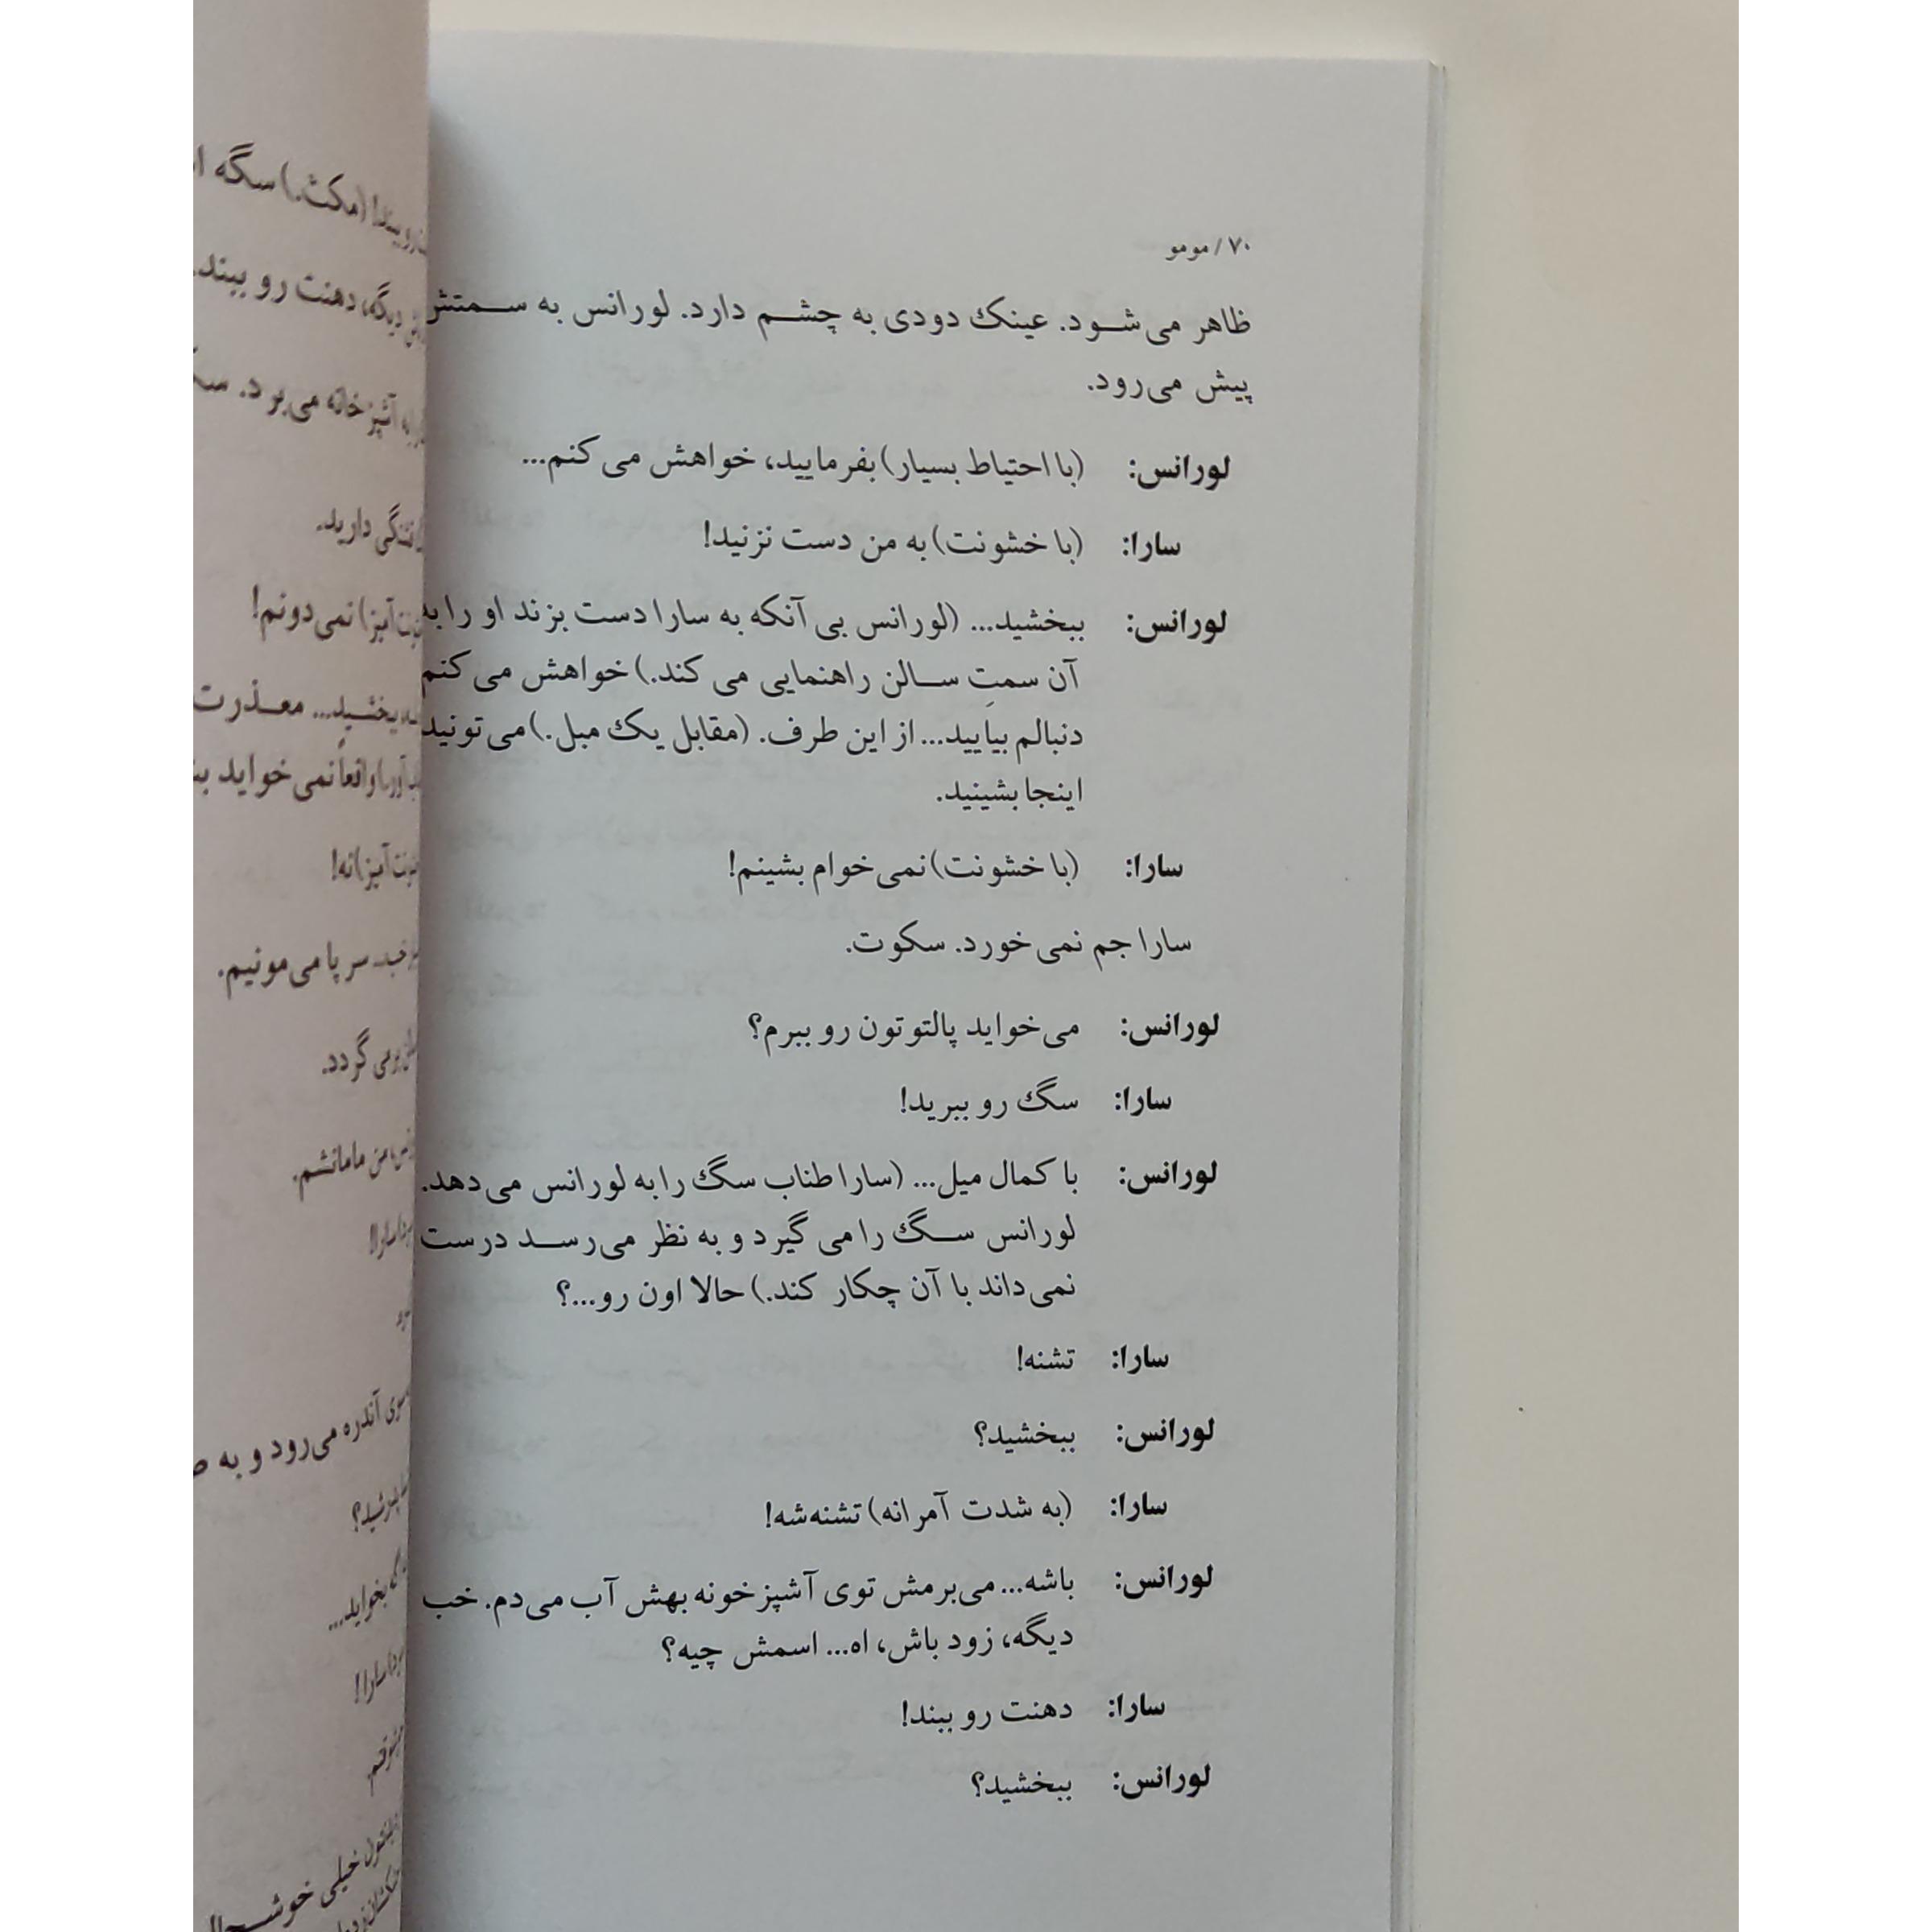 ۷۰ / مومو
ظاهر می‌شود. عینک دودی به چشم دارد. لورانس به سمتش
پیش می‌رود.
لورانس: (با احتیاط بسیار) بفرمایید، خواهش می‌کنم...
سارا: (با خشونت) به من دست نزنید!
لورانس: ببخشید... (لورانس بی آنکه به سارا دست بزند او را به
آن سمتِ سالن راهنمایی می‌کند.) خواهش می‌کنم
دنبالم بیایید... از این طرف. (مقابل یک مبل.) می‌تونید
اینجا بشینید.
سارا: (با خشونت) نمی‌خوام بشینم!
سارا جم نمی‌خورد. سکوت.
لورانس: می‌خواید پالتوتون رو ببرم؟
سارا: سگ رو ببرید!
لورانس: با کمال میل... (سارا طناب سگ را به لورانس می‌دهد.
لورانس سگ را می‌گیرد و به نظر می‌رسد درست
نمی‌داند با آن چکار کند.) حالا اون رو...؟
سارا: تشنه!
لورانس: ببخشید؟
سارا: (به شدت آمرانه) تشنه‌شه!
لورانس: باشه... می‌برمش توی آشپزخونه بهش آب می‌دم. خب
دیگه، زود باش، اه... اسمش چیه؟
سارا: دهنت رو ببند!
لورانس: ببخشید؟
(مکث.) سگه
دیگه، دهنت رو ببند.
آشپزخانه می‌برد.
دارید.
نمی‌دونم!
معذرت
واقعاً نمی‌خواید
نه!
سر پا می‌مونیم.
برمی‌گردد.
من مامانشم.
آندره می‌رود و به
بخواید...
سارا!
خیلی